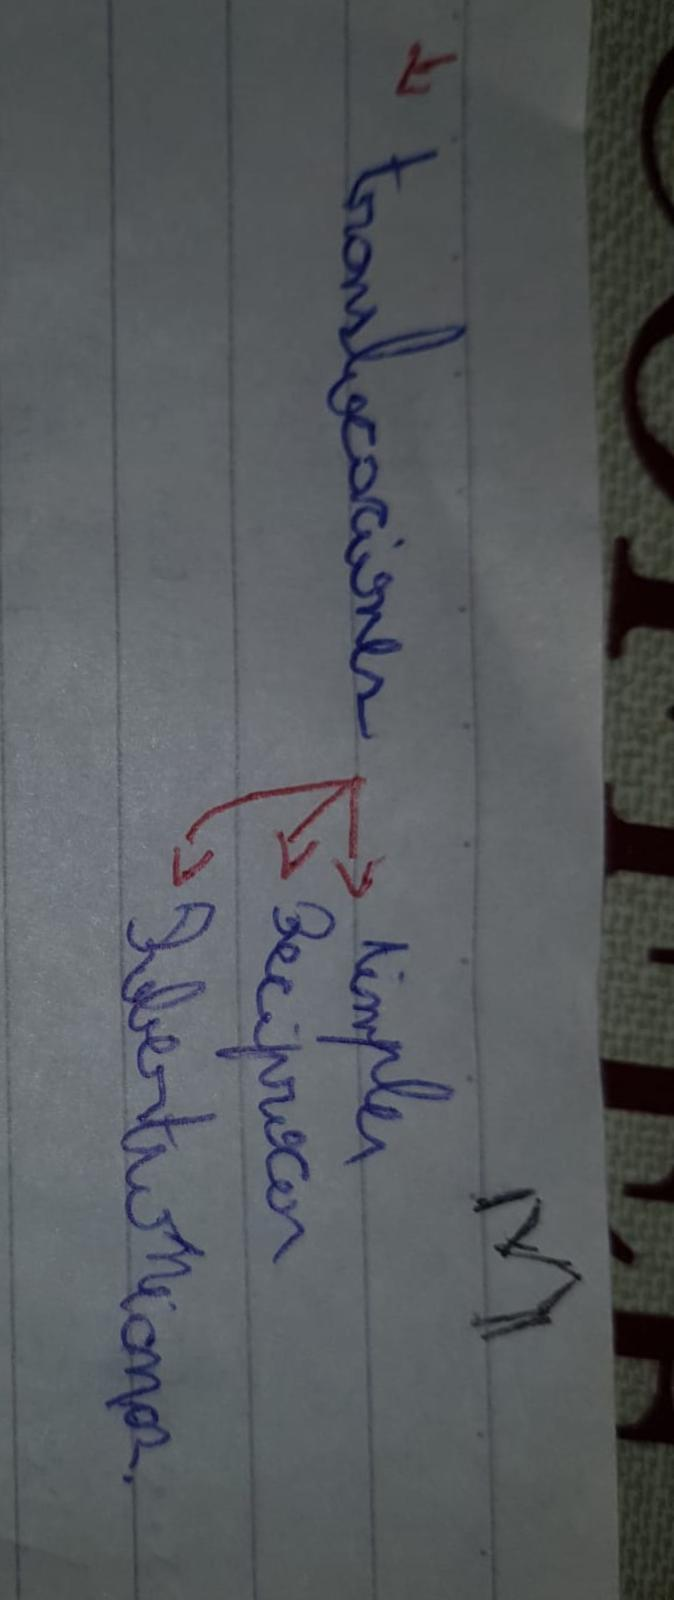 M
translocaciones
simples
Recíprocas
Robertsonianas.